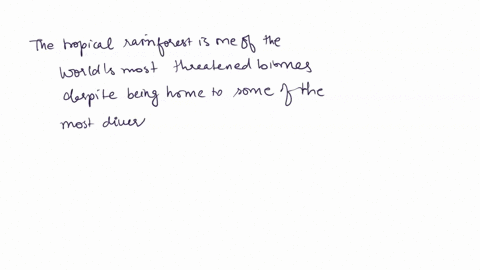 The tropical rainforest is one of the
world's most threatened biomes
despite being home to some of the
most diver